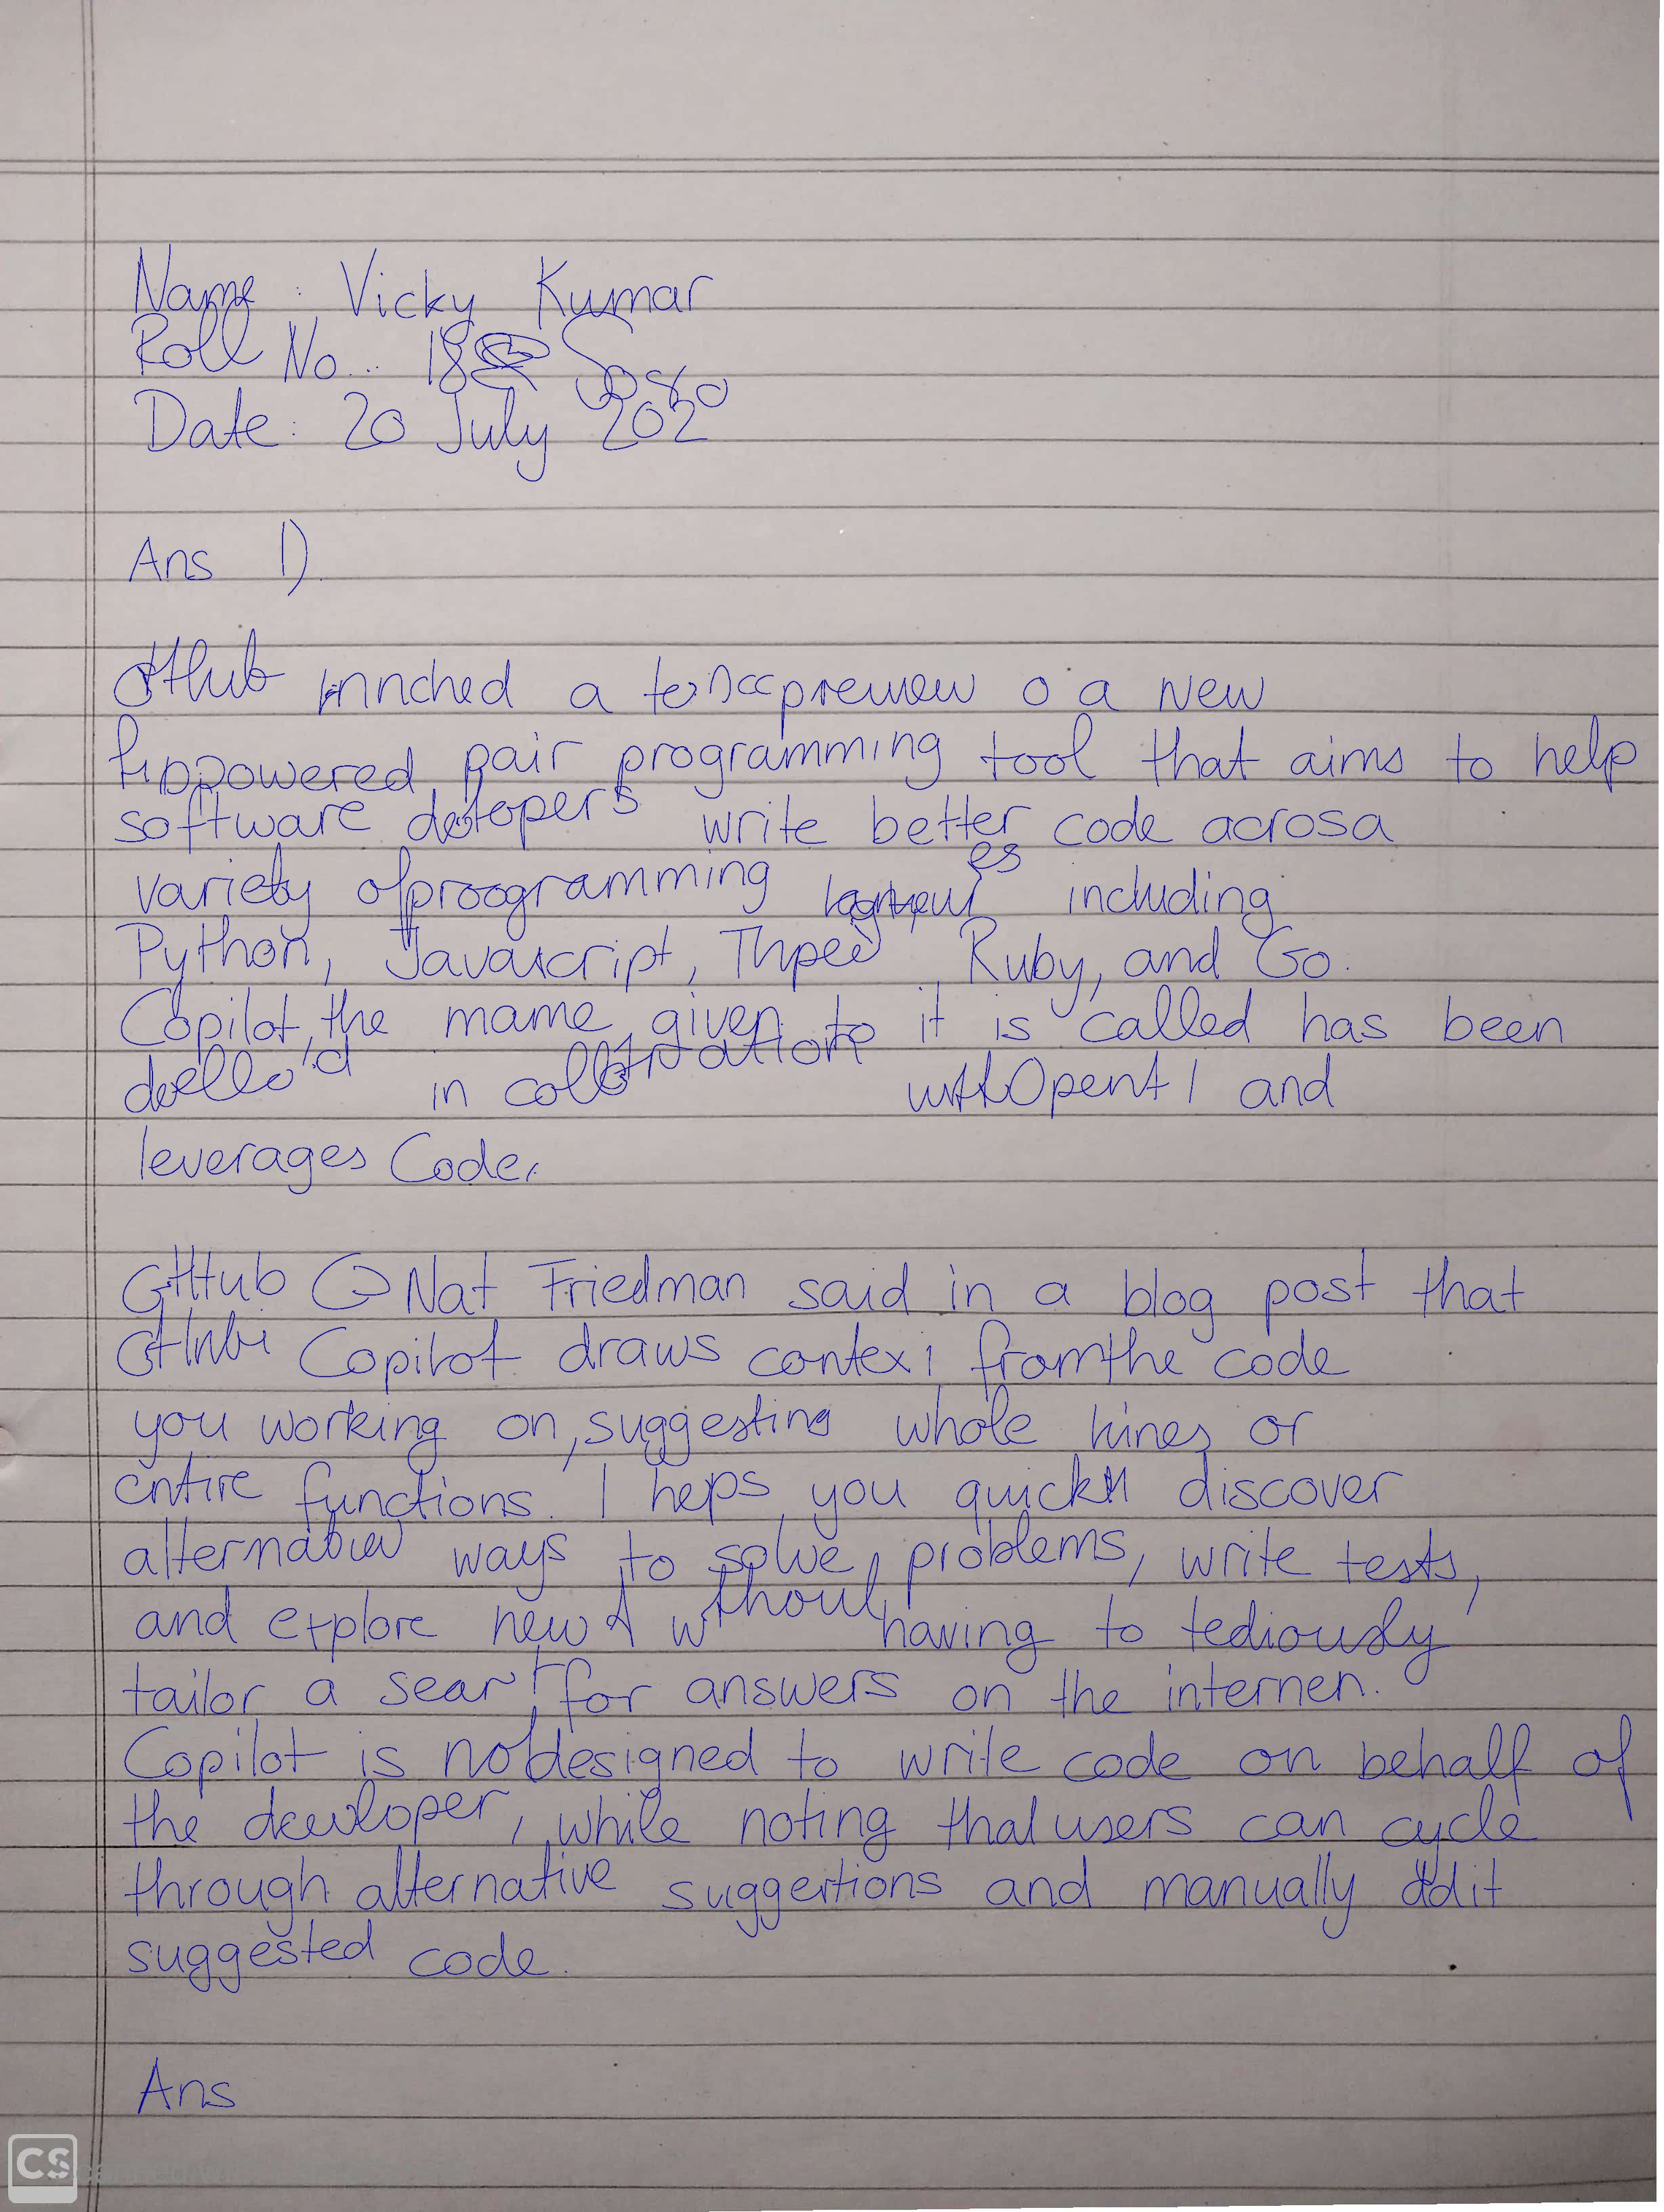 Name : Vicky Kumar
Roll No.. 18
Date: 20 July 202
Ans 1)
a a New
powered pair programming tool that aims to help
software write better code acrosa
variety of proogramming including
Python, Javascript, Ruby, and Go.
Copilot, the mame given to it is called has been
in and
leverages Code.
GHub Nat Friedman said in a blog post that
Copilot draws context from the code
you working on, suggesting whole hines or
entire functions. I heps you discover
ways to solve problems, write tests,
and explore new without having to tediously
tailor a sear for answers on the internen.
Copilot is not designed to write code on behalf of
the developer, while noting that users can cycle
through alternative suggestions and manually
suggested code.
Ans
CS